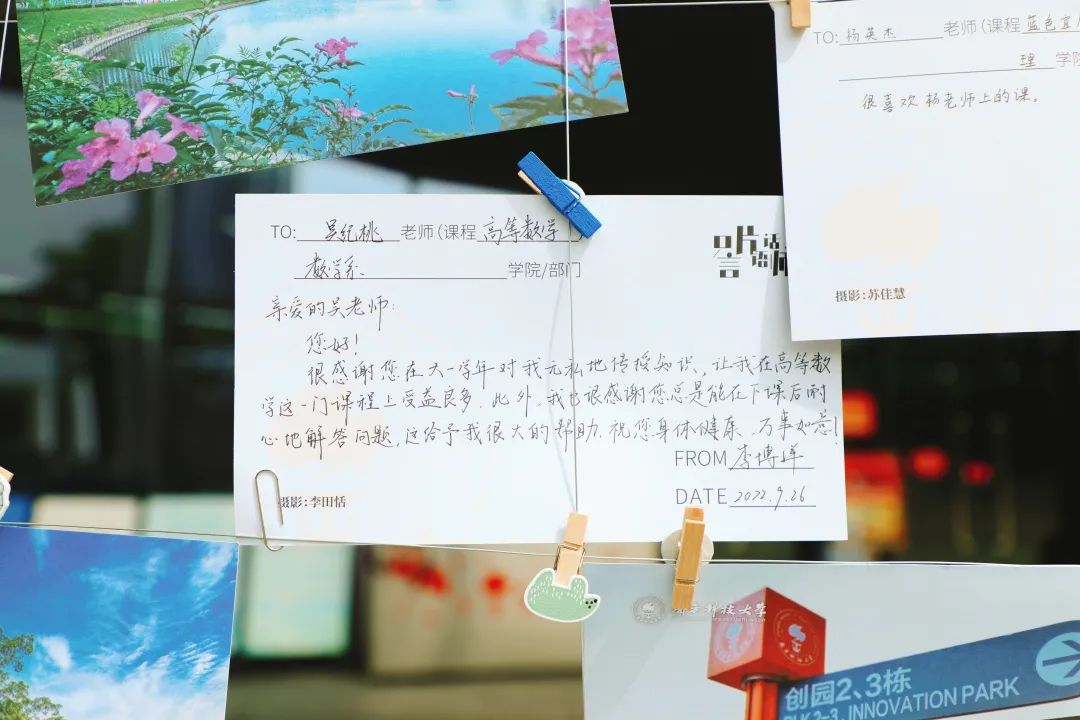 TO: 吴纪桃 老师(课程 高等数学 )
数学系 学院/部门
亲爱的吴老师:
您好!
很感谢您在大一学年对我无私地传授知识,让我在高等数
学这一门课程上受益良多.此外,我也很感谢您总是能在下课后耐
心地解答问题,这给予我很大的帮助.祝您身体健康,万事如意!
FROM 李博洋
DATE 2022.9.26
摄影:李田恬
TO: 杨英杰 老师(课程 蓝色宜
理 学院
很喜欢杨老师上的课。
摄影:苏佳慧
南方科技大学
创园2、3栋
BLK 2-3, INNOVATION PARK